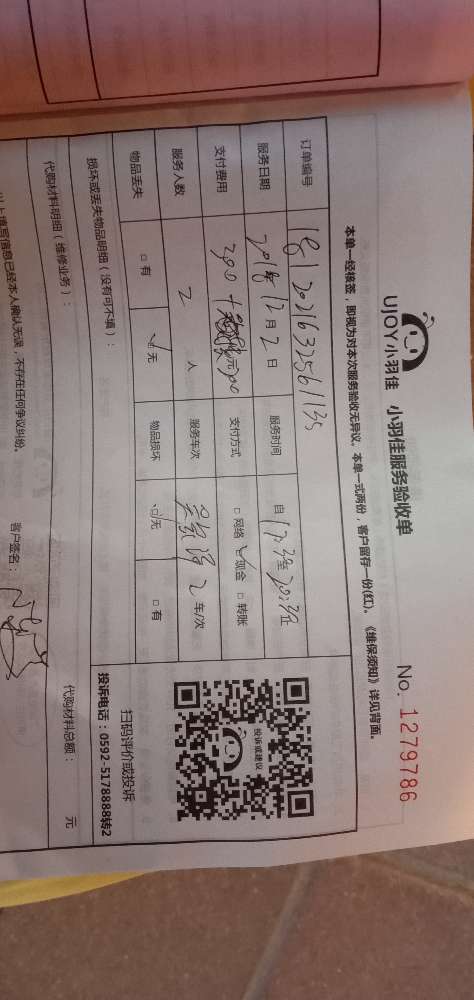 UJOY小羽佳 小羽佳服务验收单
No. 1279786
本单一经核签，即视为对本次服务验收无异议。本单一式两份，客户留存一份(红)。《维保须知》详见背面。
订单编号
服务日期 2018年12月2日 服务时间 自17:30至20:30止
支付费用 200 元 支付方式 □网络 ✓现金 □转账
服务人数 2 人 服务车次 2 车/次
物品丢失 □有 ✓无 物品损坏 ✓无 □有
投诉或建议
扫码评价或投诉
投诉电话：0592-5178888转2
损坏或丢失物品明细（没有可不填）：
代购材料明细（维修业务）： 代购材料总额： 元
以上填写信息已经本人确认无误，不存在任何争议纠纷。 客户签名：